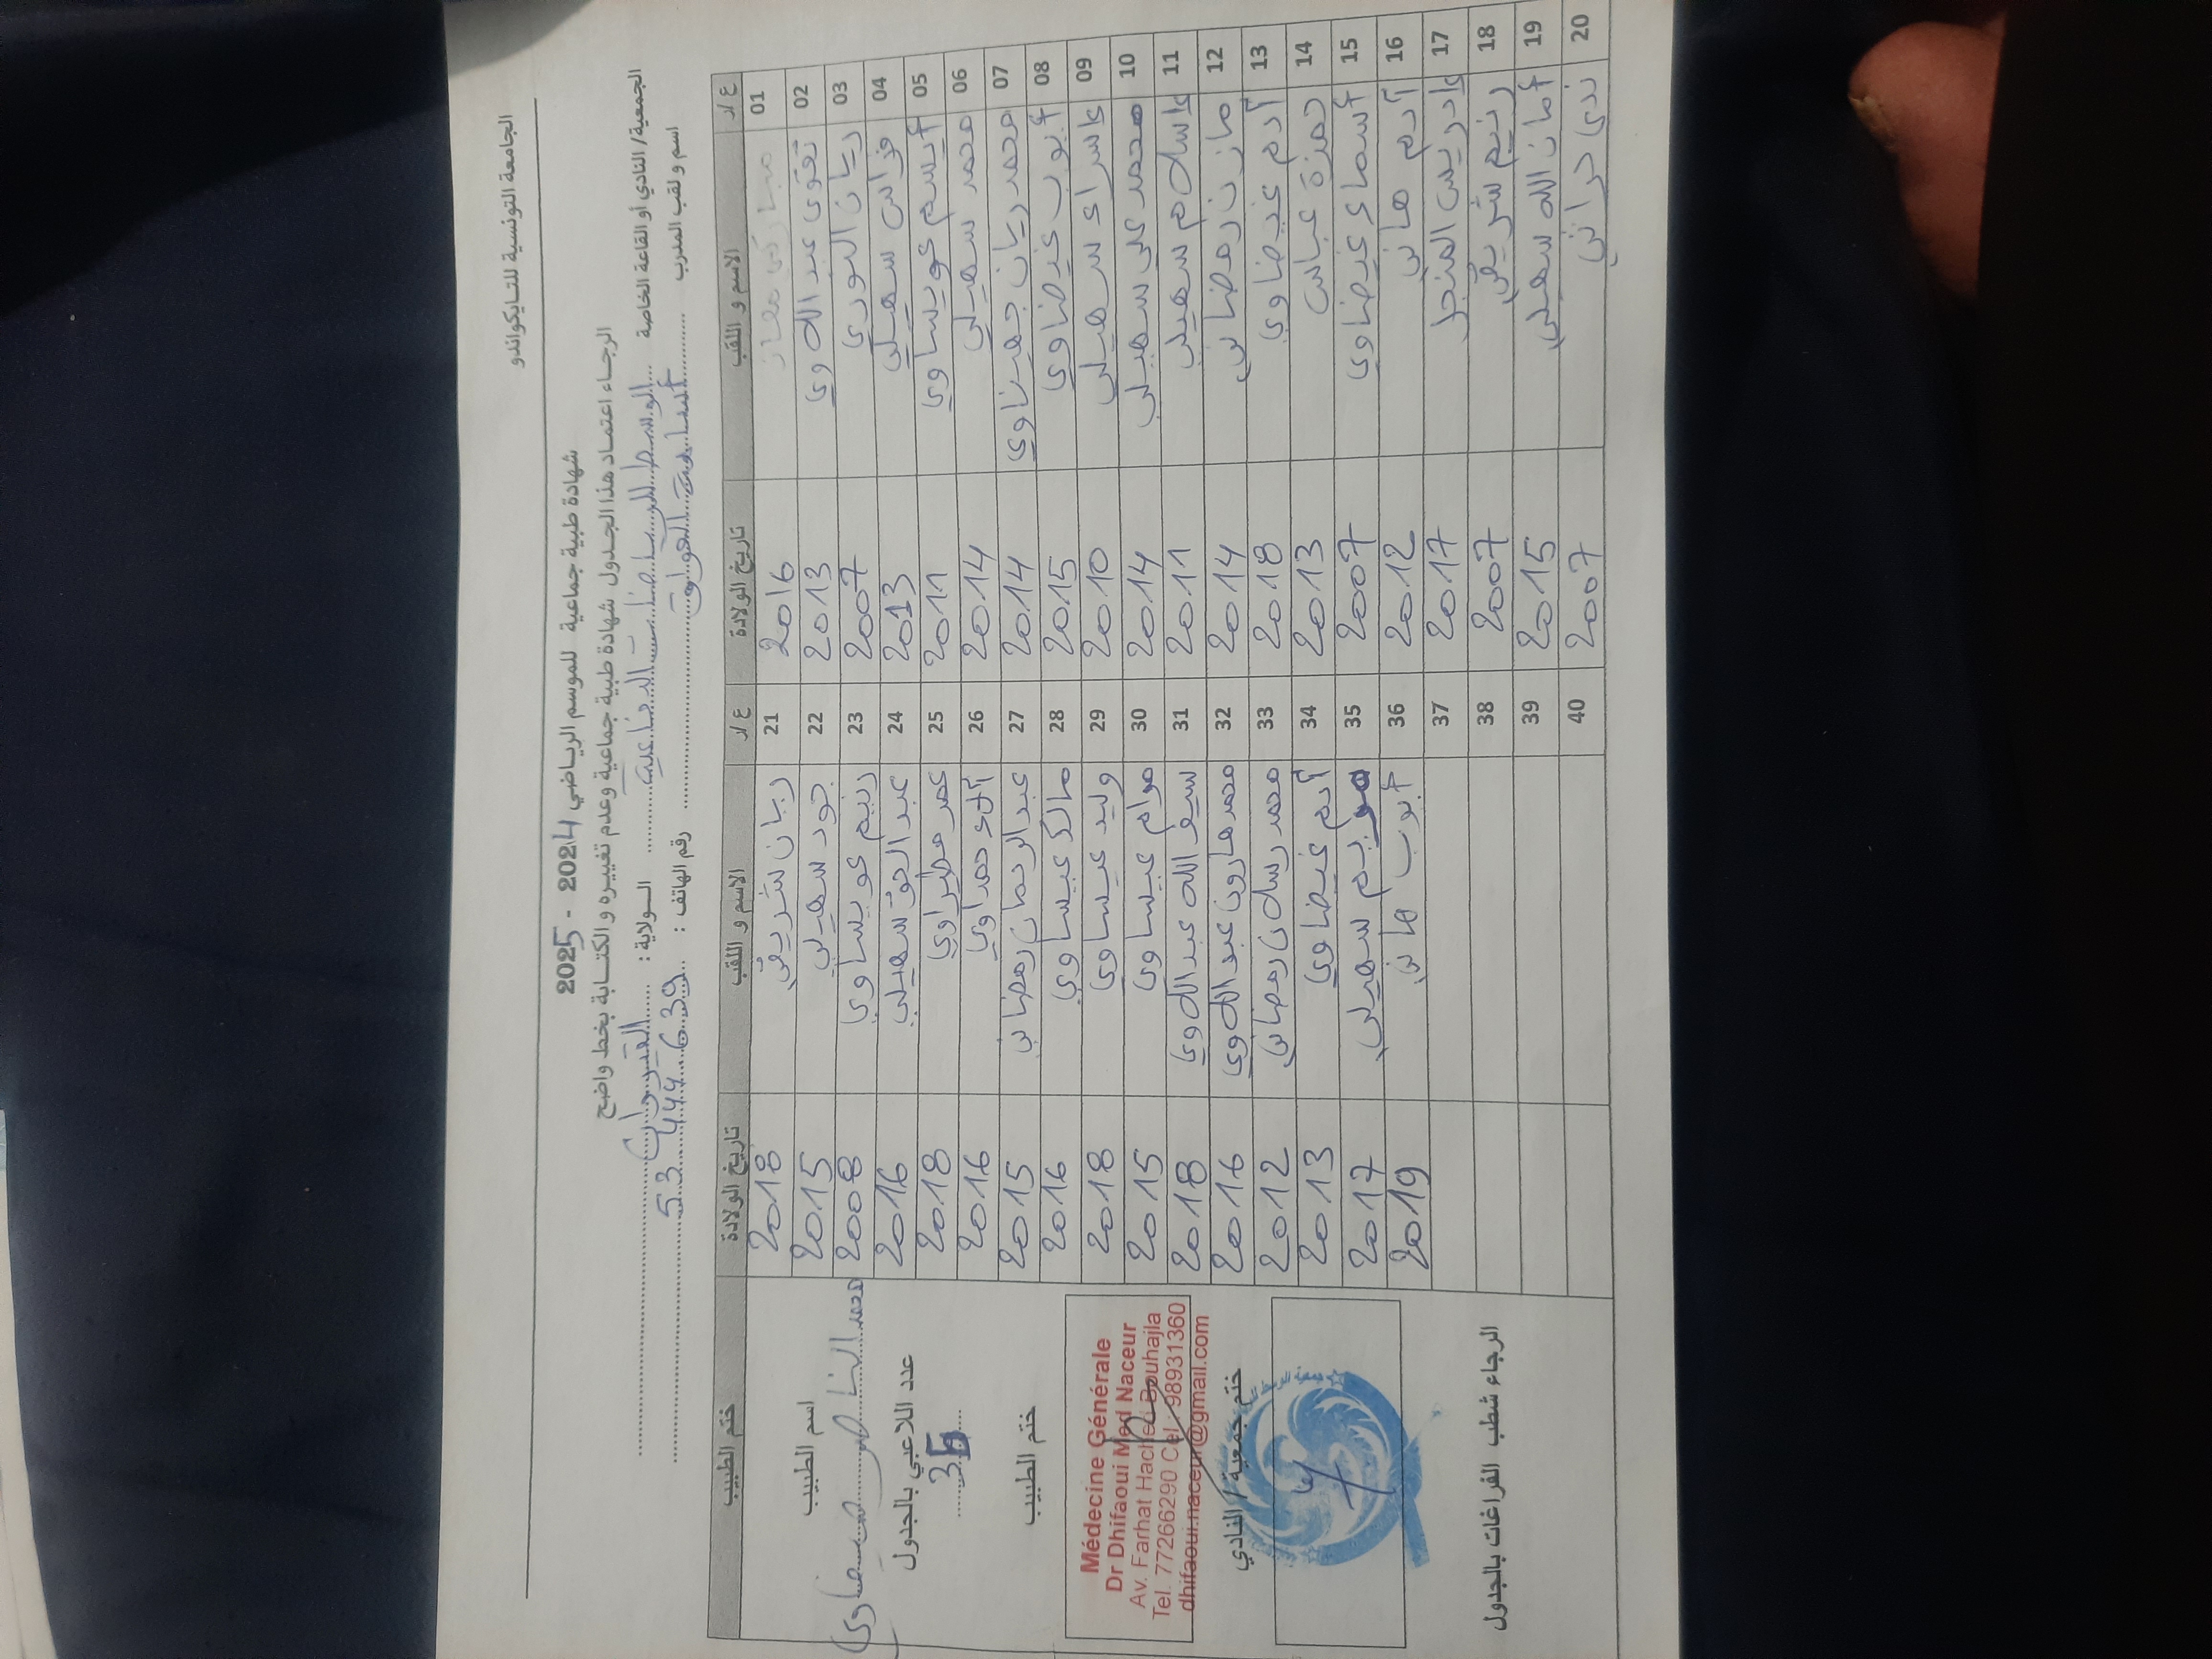 الجامعة التونسية للتايكواندو
شهادة طبية جماعية للموسم الرياضي 2024 - 2025
الرجاء اعتماد هذا الجدول شهادة طبية جماعية وعدم تغييره و الكتابة بخط واضح
الجمعية/ النادي أو القاعة الخاصة الوسط للرياضات الدفاعية الولاية : القيروان
اسم و لقب المدرب أسامة رقم الهاتف : 53 444 639
ع/ر الاسم و اللقب تاريخ الولادة ع/ر الاسم و اللقب تاريخ الولادة ختم الطبيب
01 مباركي معاز 2016 21 ريان شريقي 2018
02 تقوى عبد اللاوي 2013 22 جود سهيلي 2015
03 ريان النوري 2007 23 رنيم عويساوي 2008
04 فراس سهيلي 2013 24 عبد الحق سهيلي 2016
05 أيسم عويساوي 2011 25 عمر مطراوي 2018
06 محمد سهيلي 2014 26 آلاء حمداوي 2016
07 محمد ريان جهيناوي 2014 27 عبد الرحمان رمضاني 2015
08 أيوب غيضاوي 2015 28 مالك عيساوي 2016
09 إسراء سهيلي 2010 29 وليد عيساوي 2018
10 محمد علي سهيلي 2014 30 مرام عيساوي 2015
11 إسلام سهيلي 2011 31 سيف الله عبد اللاوي 2018
12 مازن رمضاني 2014 32 محمد هارون عبد اللاوي 2016
13 آدم غيضاوي 2018 33 محمد رسلان رمضاني 2012
14 حمزة عباس 2013 34 آدم غيضاوي 2013
15 أسماء غيضاوي 2007 35 مريم سهيلي 2017
16 آدم هاني 2012 36 أيوب هاني 2019
17 إدريس المنجل 2017 37
18 رنيم شريقي 2007 38
19 أمان الله سهيلي 2015 39
20 ندى حراثي 2007 40
اسم الطبيب
محمد الناصر ضيفاوي
عدد اللاعبي بالجدول
36
ختم الطبيب
Médecine Générale
Dr Dhifaoui Med Naceur
Av. Farhat Hached Bouhajla
Tel. 77266290 Cel : 98931360
dhifaoui.naceur@gmail.com
ختم جمعية / النادي
الرجاء شطب الفراغات بالجدول